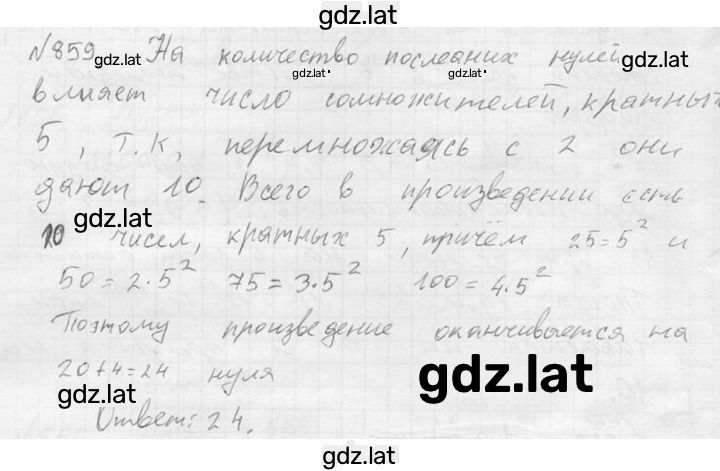 gdz.lat
№859 gdz.lat На количество последних нулей gdz.lat
gdz.lat gdz.lat
влияет число сомножителей, кратных
5, т.к, перемножаясь с 2 они
дают 10. Всего в произведении есть
gdz.lat
20 чисел, кратных 5, причём 25=5² и
50=2·5² 75=3·5² 100=4·5²
Поэтому произведение оканчивается на
20+4=24 нуля
gdz.lat gdz.lat
Ответ: 24.
gdz.lat